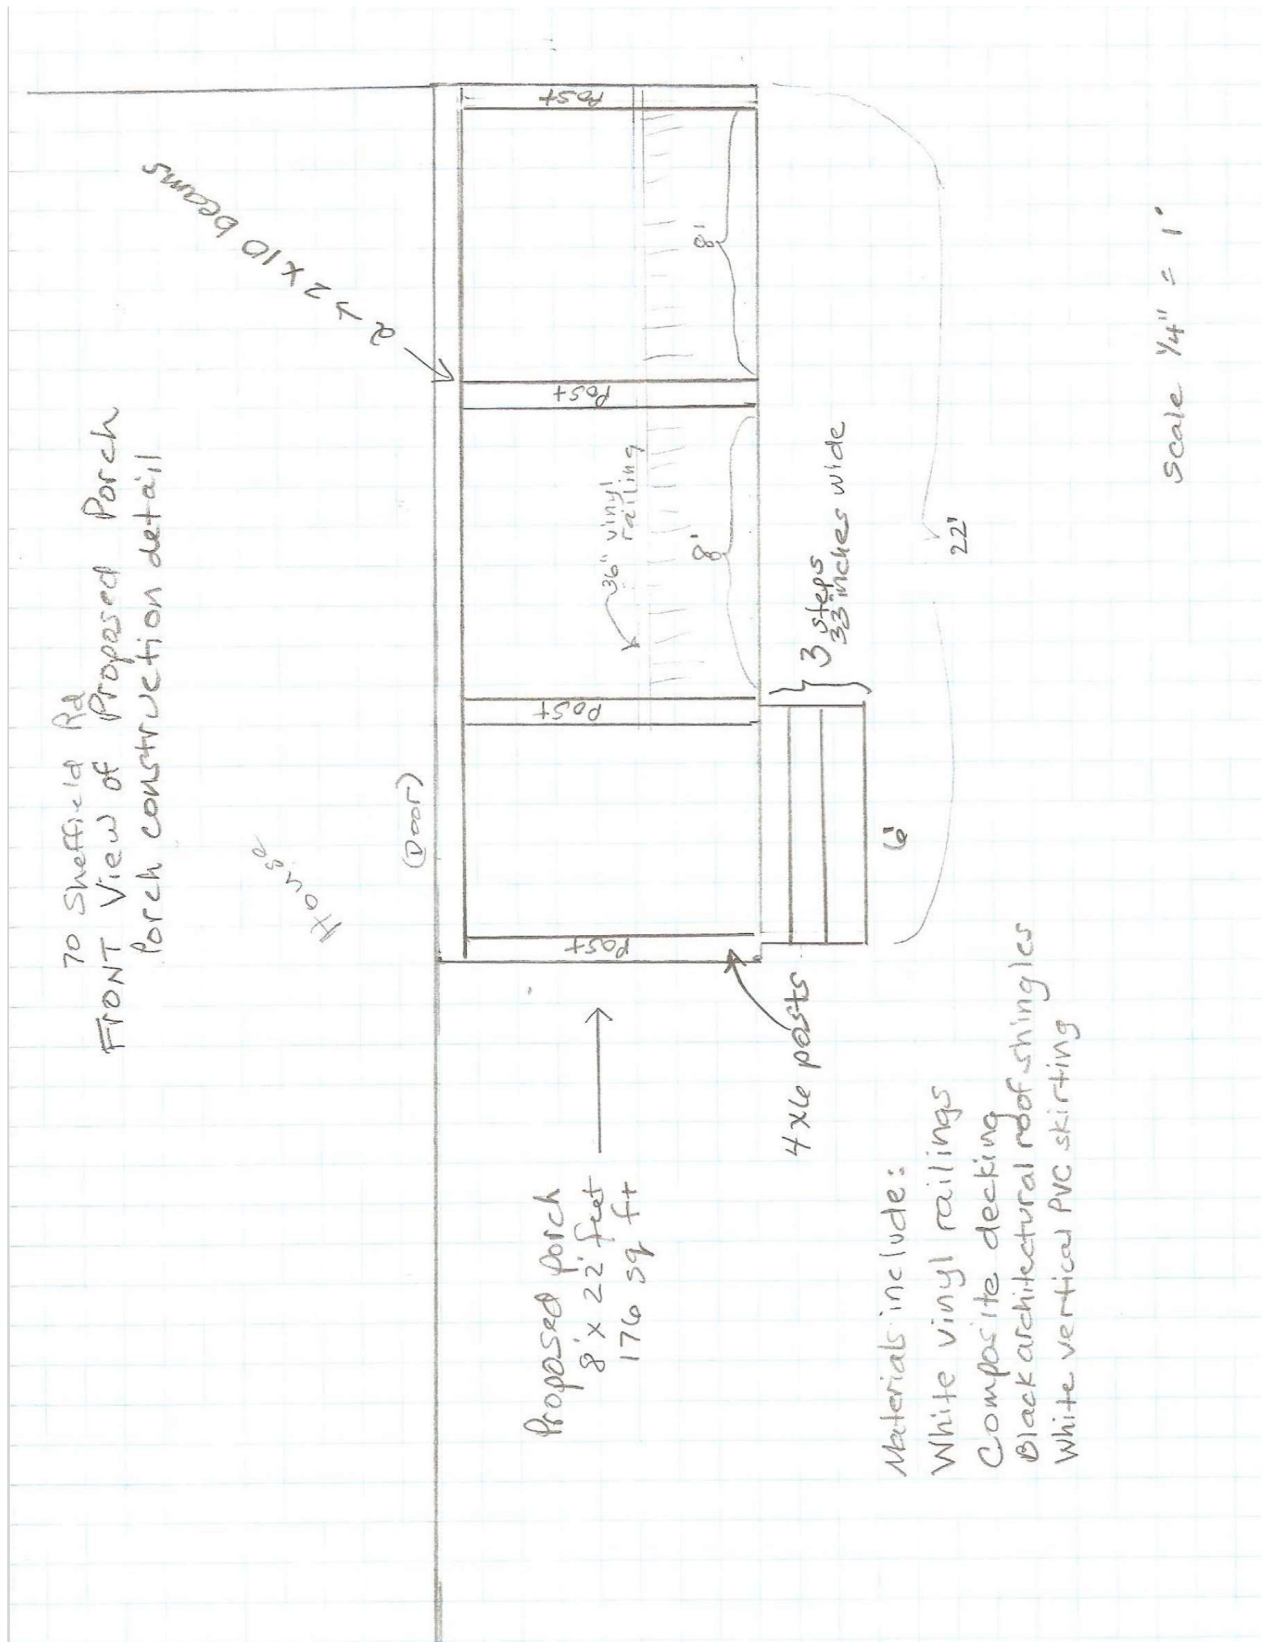 70 Sheffield Rd
FRONT View of Proposed Porch
Porch construction detail
House
(Door)
2 → 2 x 10 beams
Post
Post
Post
Post
36" vinyl
railing
8'
8'
Proposed porch
8' x 22' feet
176 sq ft
4x6 posts
3 steps
33 inches wide
6'
22'
Materials include:
White vinyl railings
Composite decking
Black architectural roof shingles
White vertical PVC skirting
Scale 1/4" = 1'